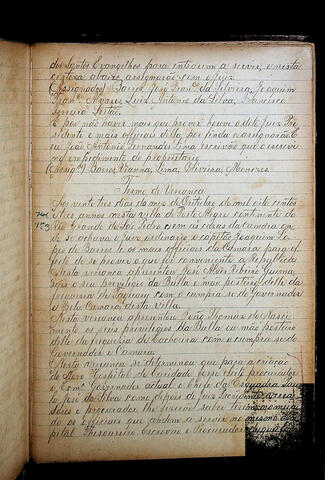 dos Santos Evangelhos para entrarem a servir, e nesta
certeza abaixo assignarão com o juiz
(Assignados) Barros, José Fran.co da Silveira, Joaquim
Fran.co Alvares, Luiz Antonio da Silva, Francisco
Ferreira Leitão.
E por não haver mais que prover houve o dito juiz Pre
sidente e mais officiaes dito por finda e assignarão. E
eu João Antonio Fernandes Lima escrivão que o escrevi
no impedimento do proprietario
(Assig.) Barros, Vianna, Lima, Oliveira, Menezes.
Termo de Vereança
Aos vinte dias do mez de Outubro de mil oito centos
e tres annos nesta villa de Porto Alegre continente do
Rio Grande de São Pedro em as casas da camara on
de se achava o juiz ordinario o capitão Joaquim Lo
pes de Barros e os mais officiaes da Camara para ef
feito de se prover o que for conveniente a Republica
Nesta vereança apresentou José Alves Ribeiro Guima
rães o seu privilegio da Bulla e mão posteiro della da
freguesia de Taquary com o cumpra-se do Governador
e Pela Camara desta villa.
Nesta vereança apresentou João Thomaz do Nasci
mento os seus privilegios da Bulla eu mão posteiro
della da freguesia da Cachoeira com o cumpra-se do
Governador e Camara.
Nesta vereança se determinou que para a criação
do Novo Hospital de Caridade fosse eleito procurador
o Ex.mo Governador actual e chefe da Esquadra Pau
lo José da Silva como depois de juiz Presidente, verea
dores e procurador
os officiaes que andem a servir no mesmo Hos
pital Thesoureiro Escrivão e Procurador